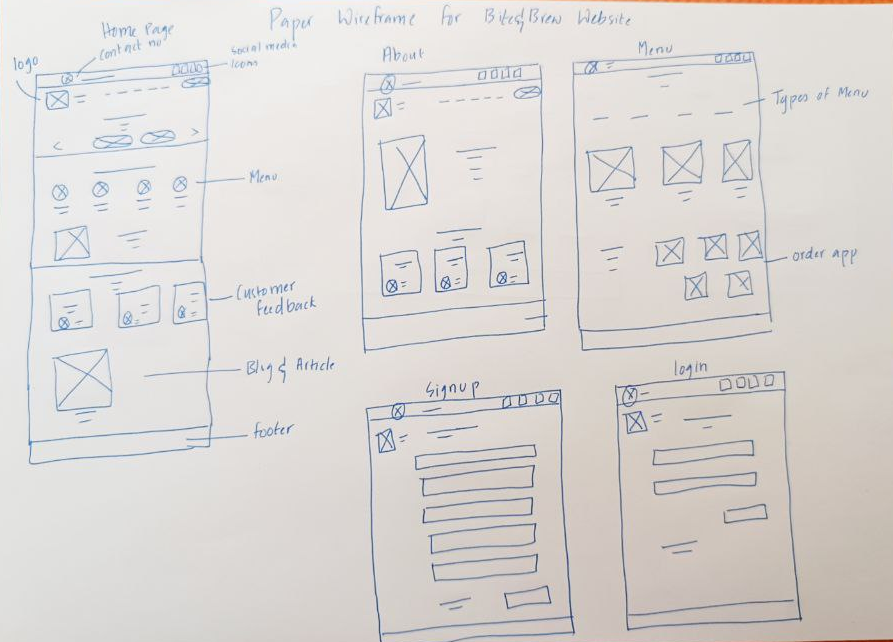 Paper Wireframe for Bites&Brew Website
Home Page
contact no
social media
Icons
logo
Menu
Customer
feedback
Blog & Article
footer
About
Menu
Types of Menu
order app
Signup
login